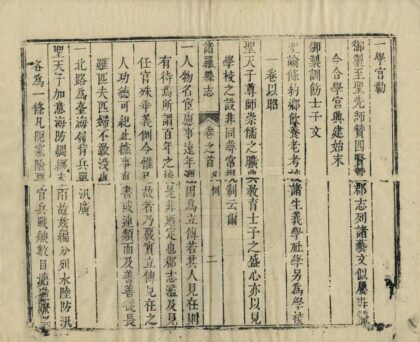 一學宮勒
御製至聖先師贊四賢贊郡志列諸藝文似屬非
今合學宮興建始末
御製訓飭士子文
聖諭條約鄉飲養老考校諸生義學社學另為學校
一卷以昭
聖天子尊師崇儒之盛典教育士子之盛心亦以見
學校之設非同尋常規制云爾
諸羅縣志 卷之首 凡例 二
一人物名宦應事遠年湮因為立傳若其人見在則
有待焉所謂百年之後是非迺定也郡志濫及見
任官殊乖義例今惟已故者乃敢實立傳見在之
人功德可紀止據事直書或連類而及善善從長
雖匹夫匹婦不敢沒焉
一北路為臺海 背兵單汛廣
聖天子加意海防綢繆未雨故茲編分列水陸防汛
各為一條凡阨塞險要官兵戰艦數目